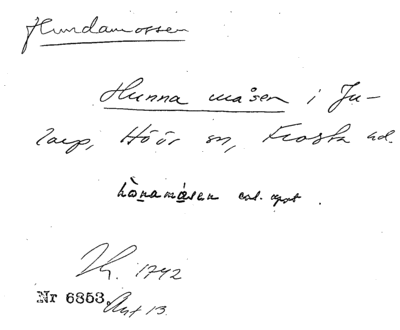 Hundamossen
Hunna måsen i Ju-
larp, Höör sn, Frosta hd.
hònamåsen enl. uppt.
Th. 1742
Nr 6853. Avt 13.